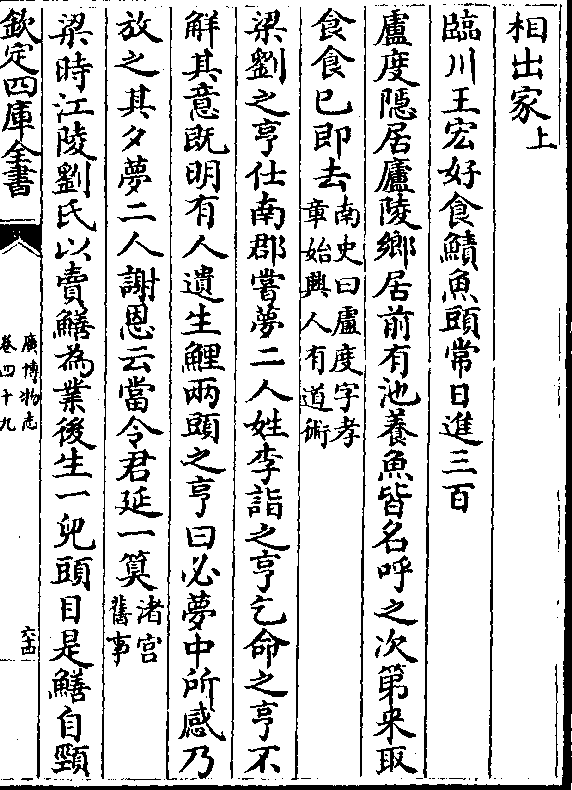 相出家上
臨川王宏好食鯖魚頭常日進三百
盧度隠居廬陵鄉居前有池養魚皆名呼之次第來取
食食已即去南史曰盧度字孝
章始興人有道術
梁劉之亨仕南郡嘗夢二人姓李詣之亨乞命之亨不
解其意既明有人遺生鯉兩頭之亨曰必夢中所感乃
放之其夕夢二人謝恩云當令君延一算渚宮
舊事
梁時江陵劉氏以賣鱔為業後生一兒頭目是鱔自頸
欽定四庫全書
廣博物志
卷四十九
六十四